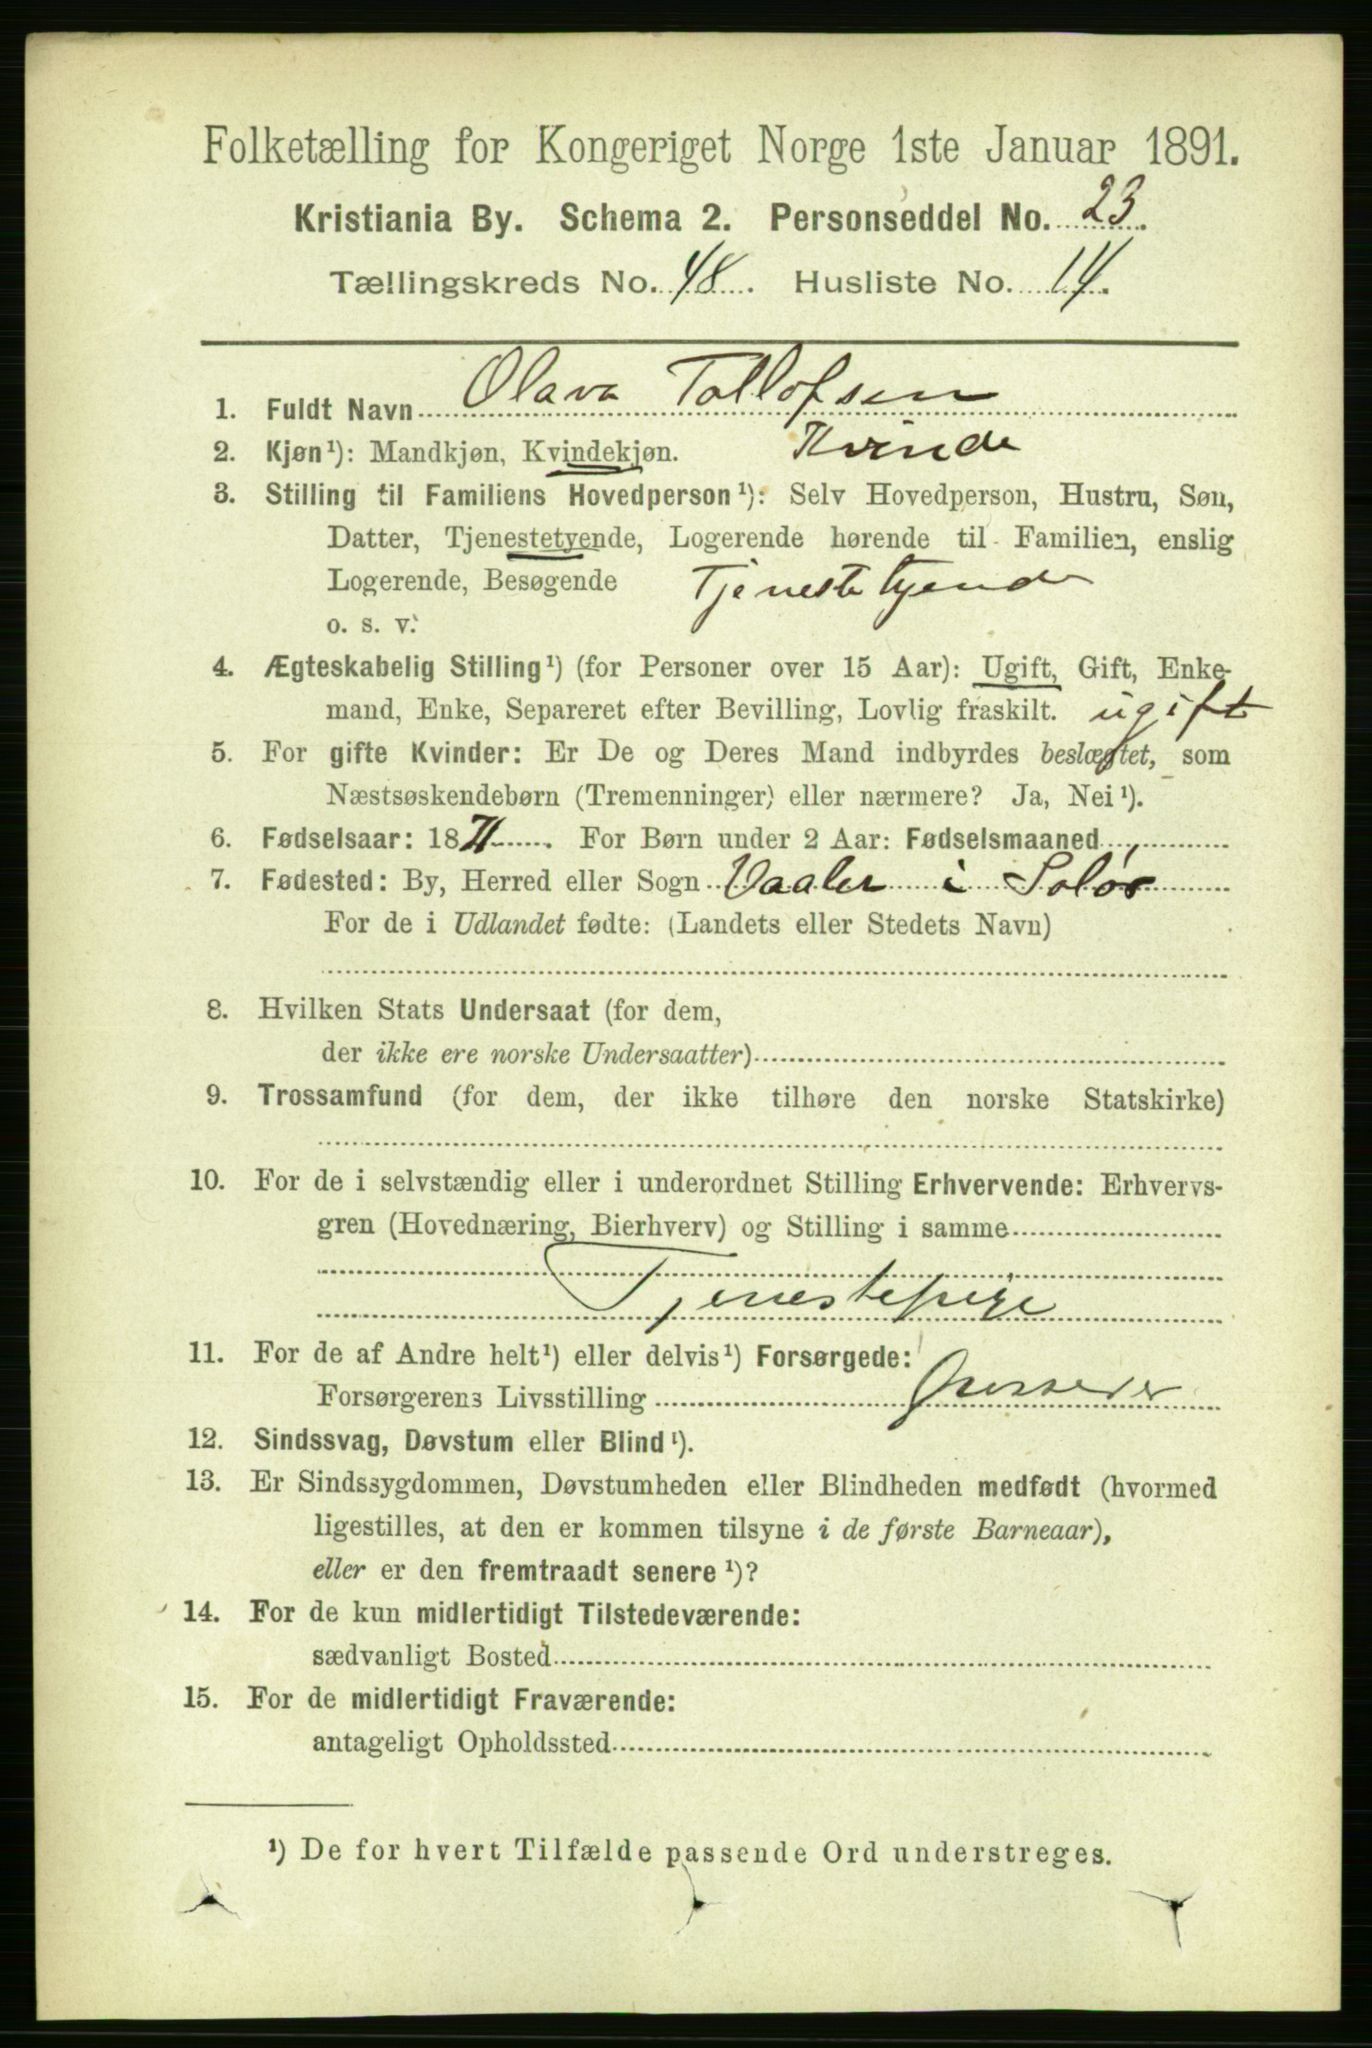 Folketælling for Kongeriget Norge 1ste Januar 1891.
Kristiania By. Schema 2. Personseddel No. 23.
Tællingskreds No. 48. Husliste No. 14.
1. Fuldt Navn Olava Tollofsen
2. Kjøn¹): Mandkjøn, Kvindekjøn. Kvinde
3. Stilling til Familiens Hovedperson¹): Selv Hovedperson, Hustru, Søn,
Datter, Tjenestetyende, Logerende hørende til Familien, enslig
Logerende, Besøgende Tjenestetyende
o. s. v.
4. Ægteskabelig Stilling¹) (for Personer over 15 Aar): Ugift, Gift, Enke-
mand, Enke, Separeret efter Bevilling, Lovlig fraskilt. ugift
5. For gifte Kvinder: Er De og Deres Mand indbyrdes beslægtet, som
Næstsøskendebørn (Tremenninger) eller nærmere? Ja, Nei¹).
6. Fødselsaar: 1871. For Børn under 2 Aar: Fødselsmaaned
7. Fødested: By, Herred eller Sogn Vaaler i Solør
For de i Udlandet fødte: (Landets eller Stedets Navn)
8. Hvilken Stats Undersaat (for dem,
der ikke ere norske Undersaatter)
9. Trossamfund (for dem, der ikke tilhøre den norske Statskirke)
10. For de i selvstændig eller i underordnet Stilling Erhvervende: Erhvervs-
gren (Hovednæring, Bierhverv) og Stilling i samme
Tjenestepige
11. For de af Andre helt¹) eller delvis¹) Forsørgede:
Forsørgerens Livsstilling
12. Sindssvag, Døvstum eller Blind¹).
13. Er Sindssygdommen, Døvstumheden eller Blindheden medfødt (hvormed
ligestilles, at den er kommen tilsyne i de første Barneaar),
eller er den fremtraadt senere¹)?
14. For de kun midlertidigt Tilstedeværende:
sædvanligt Bosted
15. For de midlertidigt Fraværende:
antageligt Opholdssted
¹) De for hvert Tilfælde passende Ord understreges.